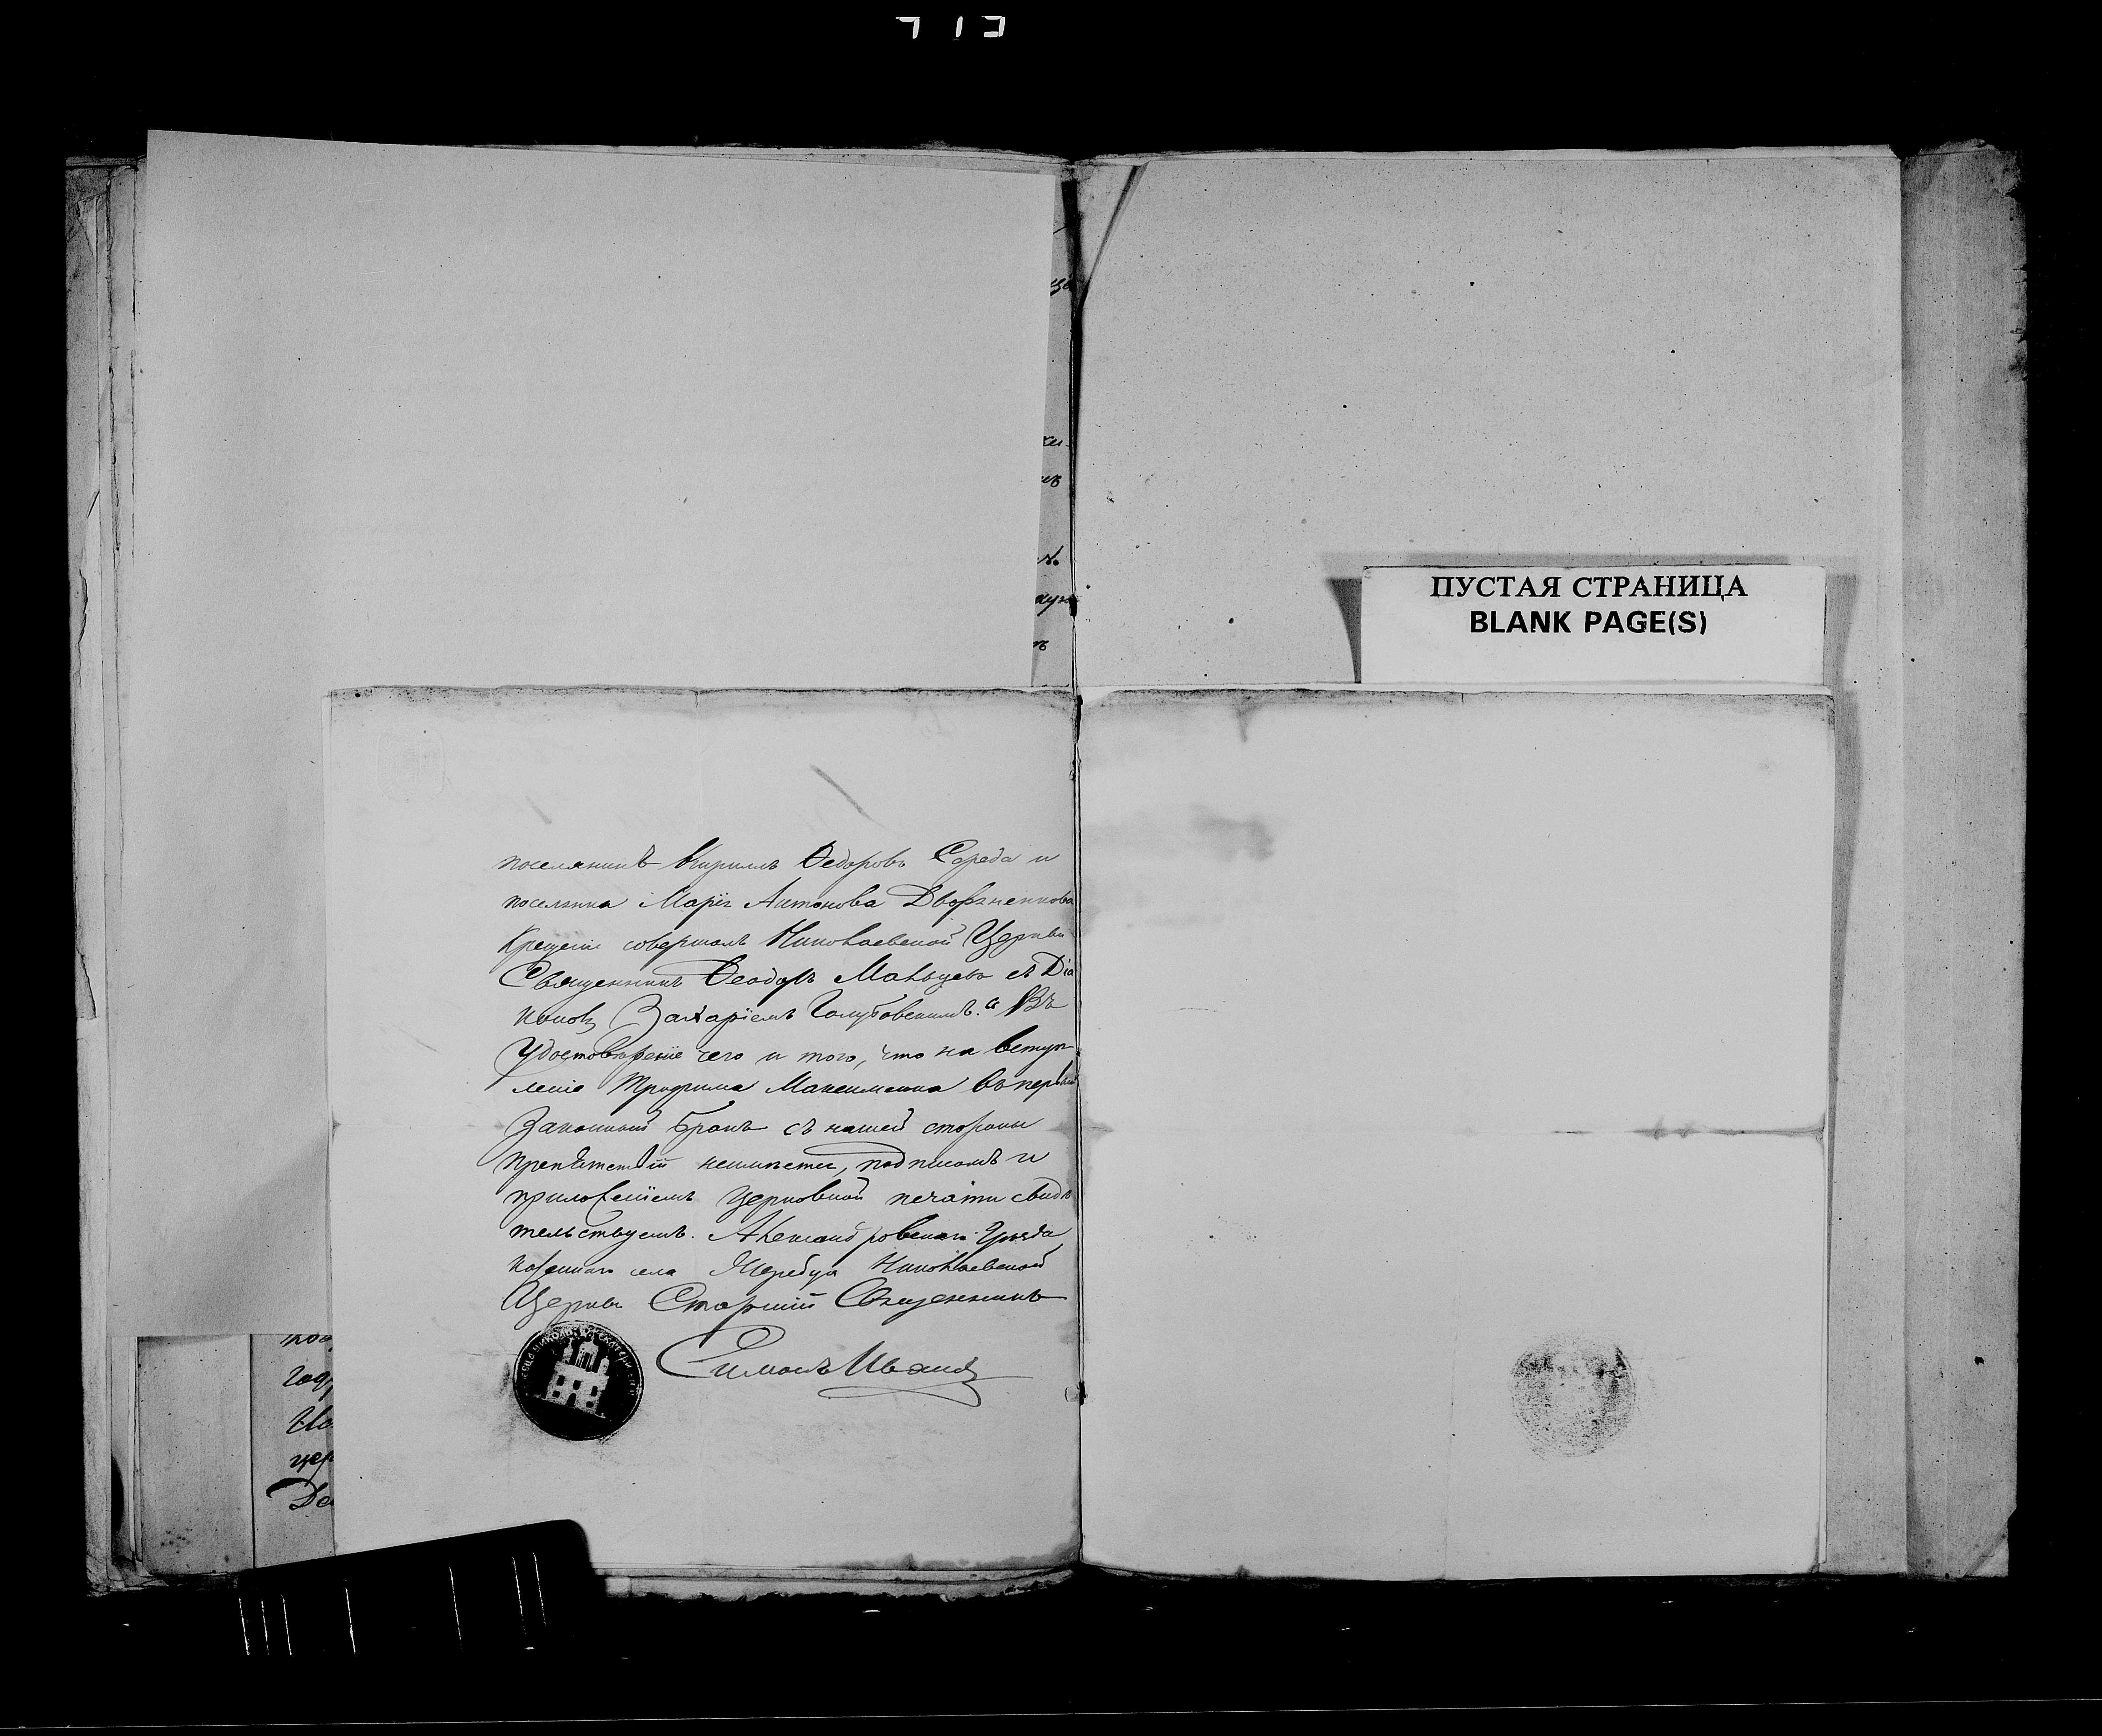 ПУСТАЯ СТРАНИЦА
BLANK PAGE(S)
поселянинъ Кирилъ Ѳедоровъ Середа и
поселянка Марія Антонова
Крещеніе совершалъ Николаевской Церкви
Священникъ Ѳеодоръ Мальцевъ съ Діа
кономъ Захаріемъ Голубовскимъ." Въ
удостовѣреніе чего и того, что на вступ
леніе Трофима Максименка въ первый
законный бракъ съ нашей стороны
препятствій неимѣется, подписомъ и
приложеніемъ Церковной печати свидѣ
тельствуемъ. Александровскаго Уѣзда
казеннаго села Жеребца Николаевской
Церкви Старшій Священникъ
Симонъ Ивановъ